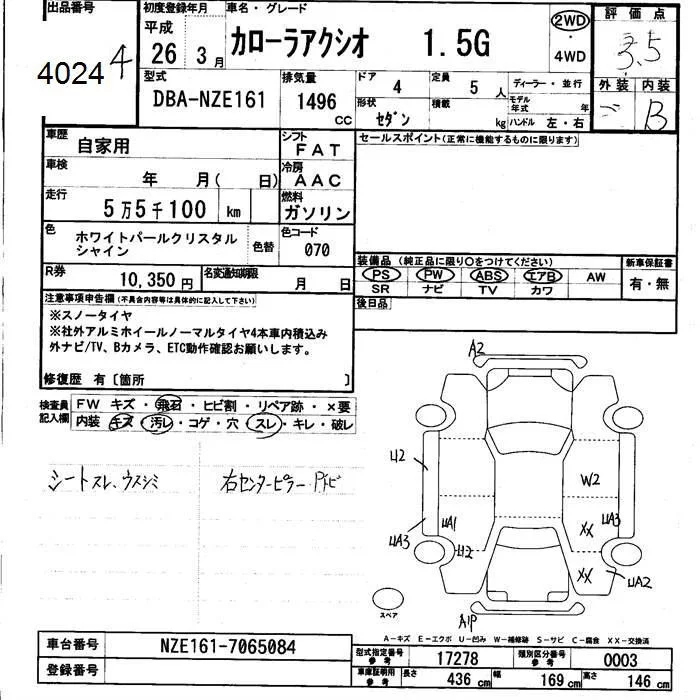 出品番号
4024 4
初度登録年月
平成
26 3月
車名・グレード
カローラアクシオ 1.5G
2WD
・
4WD
評価点
3.5
外装 内装
B
型式
DBA-NZE161
排気量
1496
CC
ドア
4
定員
5人
ディーラー・並行
形状
セダン
積載
kg
モデル年式 年
ハンドル 左・右
車歴
自家用
シフト
FAT
セールスポイント(正常に機能するものに限ります)
車検
年 月( 日)
冷房
AAC
走行
5万5千100 km
燃料
ガソリン
色
ホワイトパールクリスタル
シャイン
色替
色コード
070
装備品(純正品に限り○をつけてください)
新車保証書
PS PW ABS エアB AW
SR ナビ TV カワ
有・無
R券
10,350円
名変通知期限
月 日
後日品
注意事項申告欄(不具合内容等は具体的に記入して下さい)
※スノータイヤ
※社外アルミホイールノーマルタイヤ4本車内積込み
外ナビ/TV、Bカメラ、ETC動作確認お願いします。
修復歴 有〔箇所 〕
検査員
記入欄
FW キズ・飛石・ヒビ割・リペア跡・×要
内装 キズ・汚レ・コゲ・穴・スレ・キレ・破レ
シートスレ、ウスシミ
右センターピラー
A2
U2
W2
UA1
UA3
XX
UA3
U2
XX
UA2
スペア
A1P
A-キズ E-エクボ U-凹み W-補修跡 S-サビ C-腐食 XX-交換済
車台番号
NZE161-7065084
登録番号
型式指定番号
参考
17278
類別区分番号
参考
0003
車庫証明用
参考
長さ
436 cm
幅
169 cm
高さ
146 cm